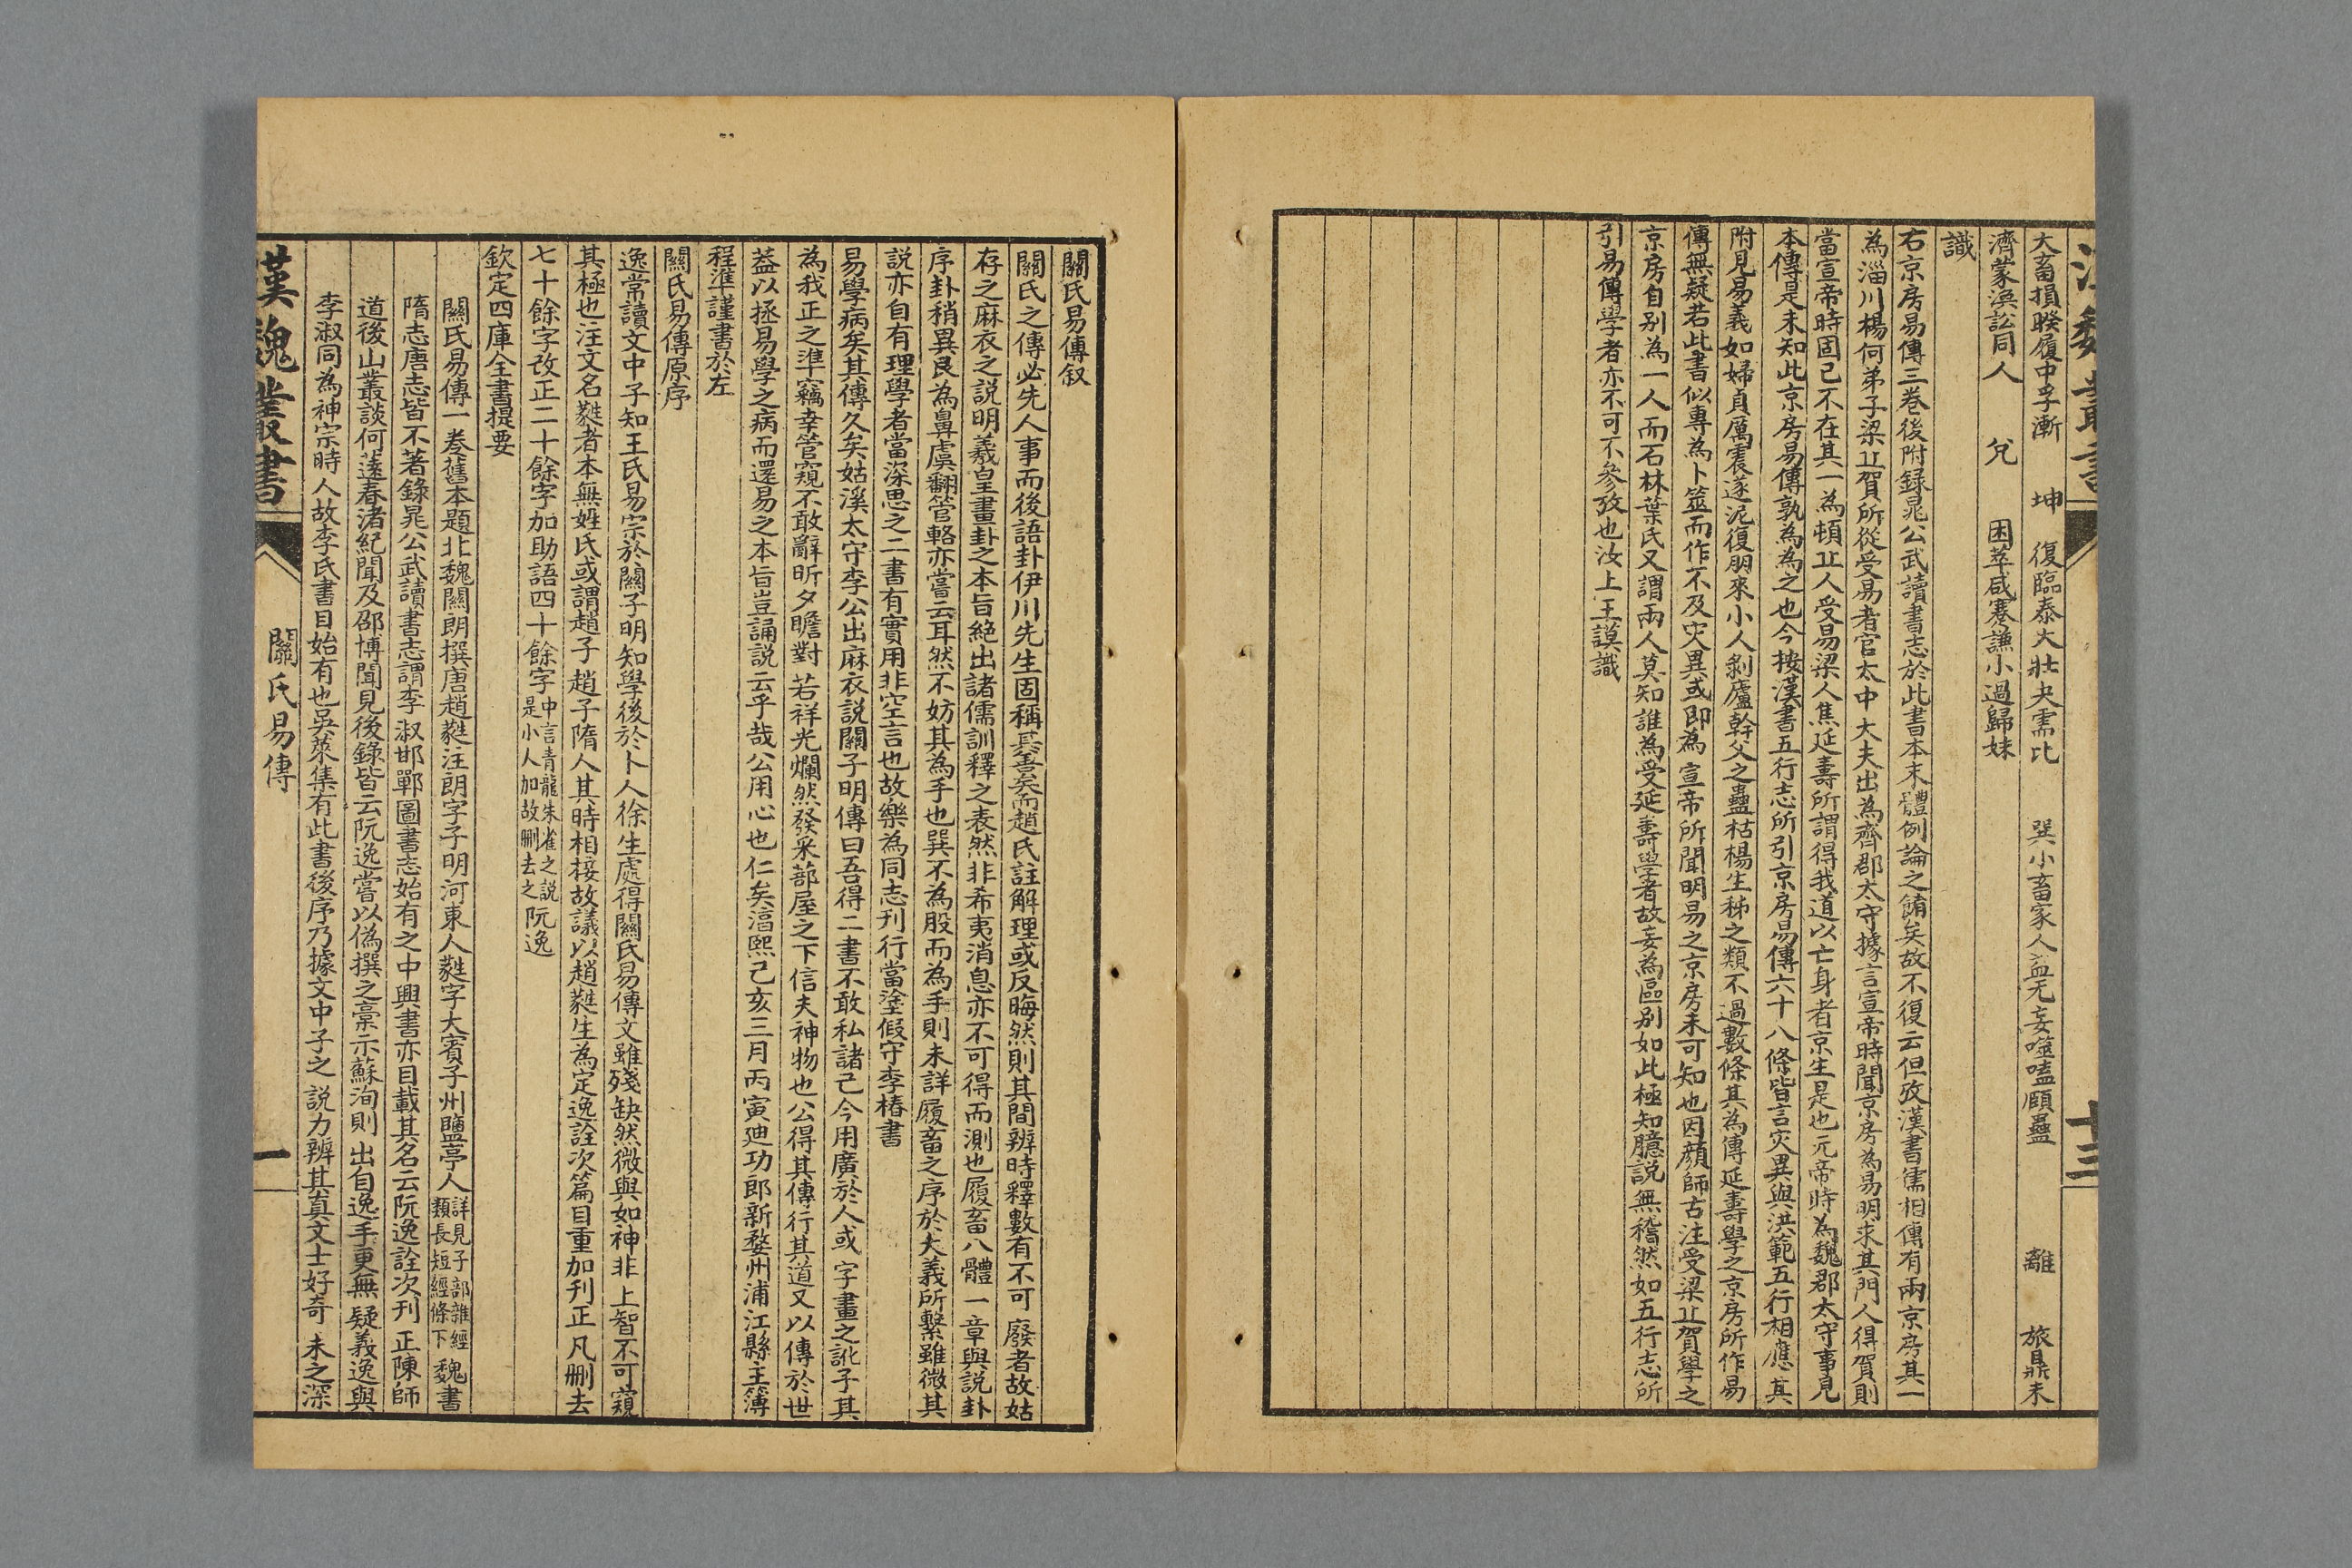 大畜損睽履中孚漸 坤 復臨泰大壯夬需比 巽小畜家人益无妄噬嗑頤蠱 離 旅鼎未
濟蒙渙訟同人 兌 困萃咸蹇謙小過歸妹
識
右京房易傳三卷後附録晁公武讀書志於此書本末體例論之餙矣故不復云但攷漢書儒相傳有兩京房其一
為淄川楊何弟子梁丠賀所從受易者官太中大夫出為齊郡太守據言宣帝時聞京房為易明求其門人得賀則
當宣帝時固已不在其一為頓丠人受易梁人焦延壽所謂得我道以亡身者京生是也元帝時為魏郡太守事見
本傳是未知此京房易傳孰為為之也今按漢書五行志所引京房易傳六十八條皆言灾異與洪範五行相應其
附見易義如婦貞厲震遂泥復朋來小人剝廬幹父之蠱枯楊生稊之類不過數條其為傳延壽學之京房所作易
傳無疑若此書似專為卜筮而作不及灾異或即為宣帝所聞明易之京房未可知也因顔師古注受梁丠賀學之
京房自别為一人而石林葉氏又謂兩人莫知誰為受延壽學者故妄為區别如此極知臆説無稽然如五行志所
引易傳學者亦不可不參攷也汝上王謨識
漢魏叢書
十三
關氏易傳叙
關氏之傳必先人事而後語卦伊川先生固稱其善矣而趙氏註解理或反晦然則其間辨時釋數有不可廢者故姑
存之麻衣之説明羲皇畫卦之本旨絶出諸儒訓釋之表然非希夷消息亦不可得而測也履畜八體一章與説卦
序卦稍異艮為鼻虞翻管輅亦嘗云耳然不妨其為手也巽不為股而為手則未詳履畜之序於大義所繫雖微其
説亦自有理學者當深思之二書有實用非空言也故樂為同志刊行當塗假守李椿書
易學病矣其傳久矣姑溪太守李公出麻衣説關子明傳曰吾得二書不敢私諸己今用廣於人或字畫之訛子其
為我正之準竊幸管窺不敢辭昕夕瞻對若祥光爛然發采蔀屋之下信夫神物也公得其傳行其道又以傳於世
葢以拯易學之病而還易之本旨豈誦説云乎哉公用心也仁矣湻熙己亥三月丙寅廸功郎新婺州浦江縣主簿
程準謹書於左
關氏易傳原序
逸常讀文中子知王氏易宗於關子明知學後於卜人徐生處得關氏易傳文雖殘缺然微與如神非上智不可窺
其極也注文名蕤者本無姓氏或謂趙子趙子隋人其時相接故議以趙蕤生為定逸詮次篇目重加刊正凡删去
七十餘字改正二十餘字加助語四十餘字中言青龍朱雀之説是小人加故删去之阮逸
欽定四庫全書提要
關氏易傳一卷舊本題北魏關朗撰唐趙蕤注朗字子明河東人蕤字大賓子州鹽亭人詳見子部雜經類長短經條下魏書
隋志唐志皆不著錄晁公武讀書志謂李淑邯鄲圖書志始有之中興書亦目載其名云阮逸詮次刊正陳師
道後山叢談何薳春渚紀聞及邵博聞見後錄皆云阮逸嘗以僞撰之稾示蘇洵則出自逸手更無疑義逸與
李淑同為神宗時人故李氏書目始有也吳萊集有此書後序乃據文中子之説力辨其真文士好奇未之深
漢魏叢書
關氏易傳
一